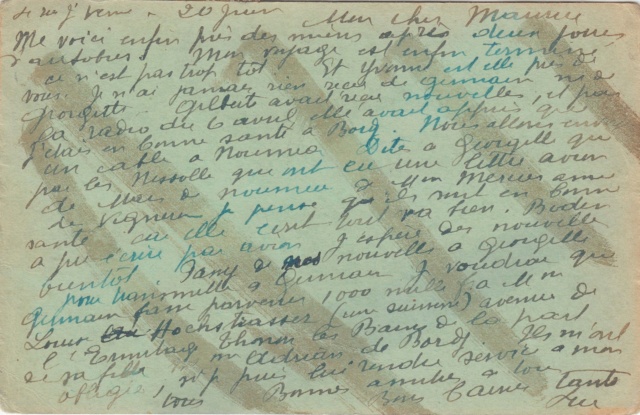 4 rue J. Verne - 20 Juin Mon cher Maurice
Me voici enfin près des miens après deux jours
d'autobus. Mon voyage est enfin terminé
ce n'est pas trop tôt Et Yvonne est elle près de
vous. Je n'ai jamais rien reçu de Germain ni de
Georgette Gilbert avait reçu nouvelles, et par
la radio du 6 avril elle avait appris que
j'étais en bonne santé à Bord. Nous allons env
un cable à Nouméa Dite à Georgette que
par les Nissolle qui ont eu une lettre avion
de Mars de nouméa Mme
de je pense qu'ils sont en bonne
santé car elle c'est tout va bien.
a pu écrire par avion J'espère des nouvelles
bientôt Fany de mes nouvelle à Georgette
pour transmettre à Germain Je voudrai que
Germain fasse parvenir 1000 à Mme
Louise Hochstrasser (une suissesse) avenue de
l'Ermitage Thonon les Bains de la part
de sa fille Mme Adrian de Bord. Ils m'ont
obligée, si je puis lui rendre service à mon
tour Bonnes amitiés à tous
Bons baisers Tante